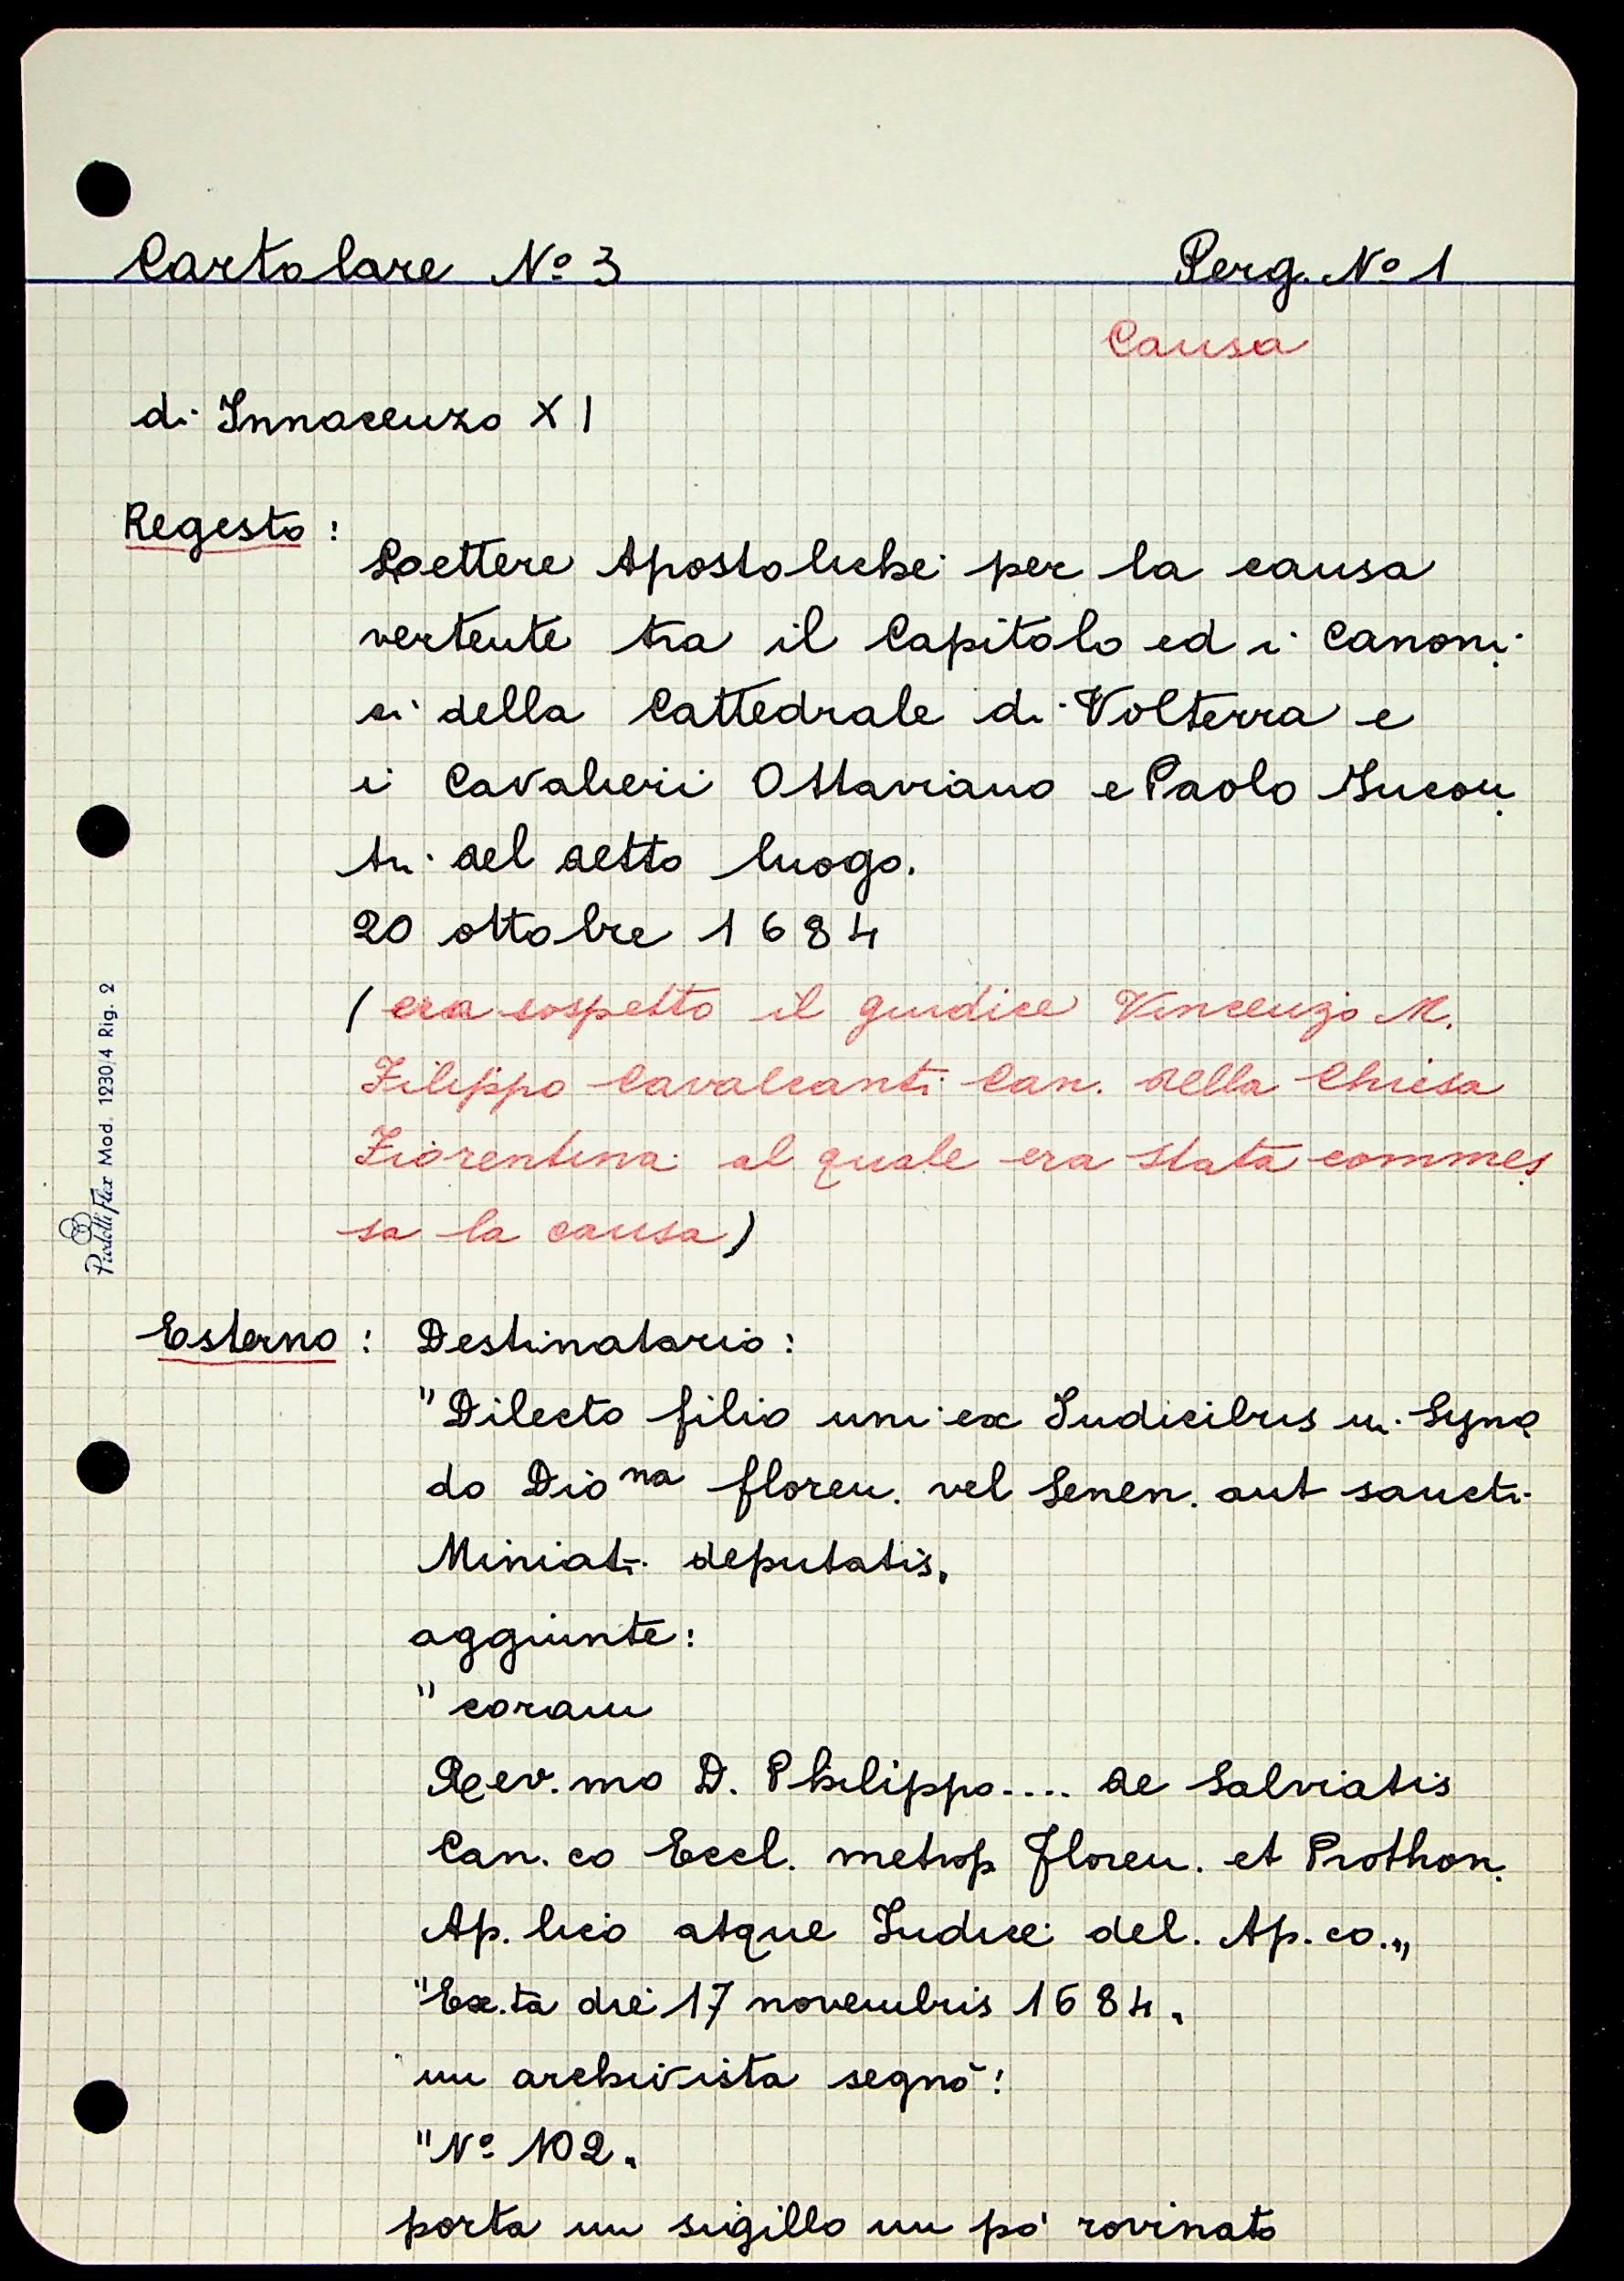 Cartolare Nº 3 Perg. Nº 1
Causa
di Innocenzo XI
Regesto:
Lettere Apostoliche per la causa
vertente tra il Capitolo ed i Canoni
ci della Cattedrale di Volterra e
i Cavalieri Ottaviano e Paolo Incon
tri del detto luogo.
20 ottobre 1684
(era sospetto il giudice Vincenzo M.
Filippo Cavalcanti Can. della Chiesa
Fiorentina al quale era stata commes
sa la causa)
Pigna Mod. 1230/4 Rig. 2
Esterno: Destinatario:
"Dilecto filio uni ex Iudicibus in Syno
do Dio na floren. vel Senen. aut sancti
Miniati deputatis„
aggiunte:
"coram
Rev.mo D. Philippo.... de Salviatis
Can.co Eccl. metrop floren. et Prothon.
Ap.lico atque Iudice del. Ap.co.„
"Ex.ta die 17 novembris 1684„
un archivista segnò:
"Nº 102„
porta un sigillo un po' rovinato